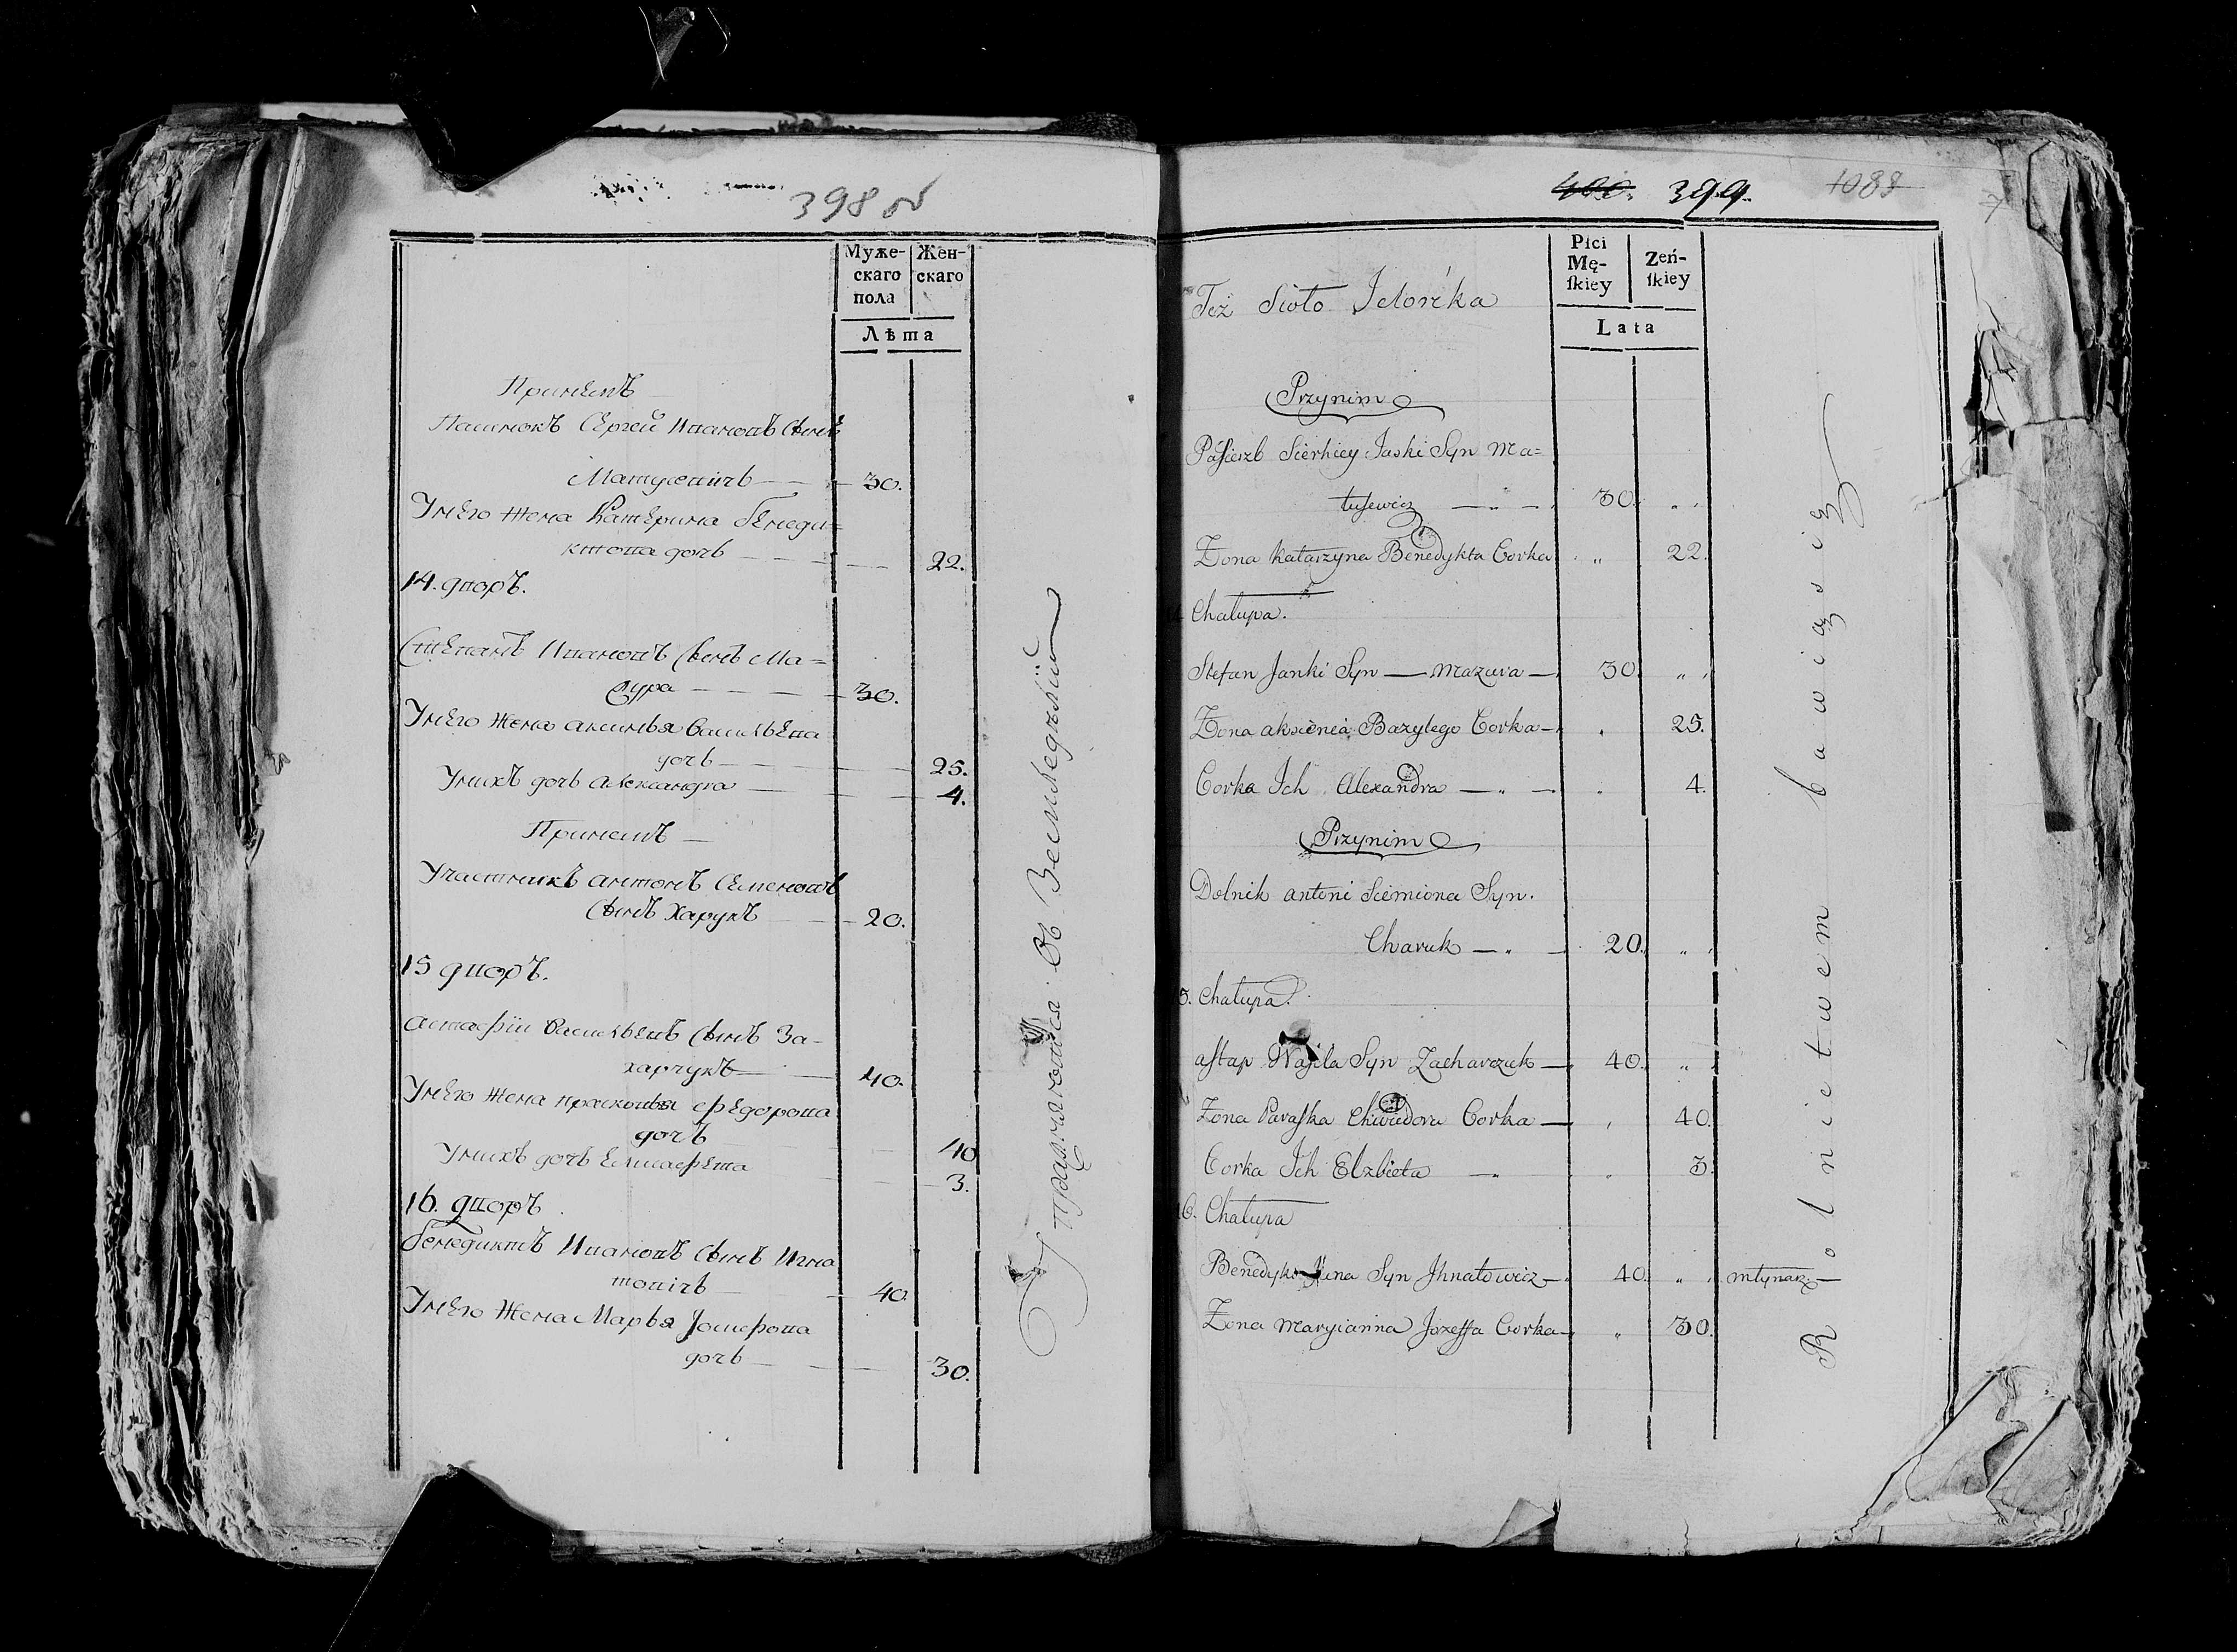 398 об
Муже-
скаго
пола
Жен-
скаго
Лѣта
Принемъ
Пасинокъ Сергей Ивановъ сынъ
Матусевичъ 30.
У него жена Катерина Бенеди-
ктова дочь 22.
14. дворъ.
Степанъ Ивановъ сынъ Ма-
зура 30.
У него жена Аксинья Васильева
дочь 25.
У нихъ дочь Александра 4.
Принемъ
Участникъ Антонъ Семеновъ
сынъ Харукъ 20.
15 дворъ.
Астафiй Васильевъ сынъ За-
харчукъ 40.
У него жена Прасковья Федорова
дочь 40
У нихъ дочь Елисафета 3.
16. дворъ
Бенедиктъ Ивановъ сынъ Игна
товичъ 40.
У него жена Марья Иосифова
дочь 30.
Упражняются Въ Земледѣлiи
400. 399. 1088
Też Sioło
Płci
Mę-
ſkiey
Zeń-
ſkiey
Lata
Przynim
Paſierzb Sierhiey Jaśki Syn Ma=
tuſewicz 30. „
Żona Katarzyna Benedykta Corka „ 22.
Chałupa.
Stefan Janki Syn — Mazura — 30. „
Żona Aksienia Bazylego Corka — „ 25.
Corka Ich Alexandra — „ — „ 4.
Przynim
Dolnik Antoni Siemiona Syn.
Charuk — „ — 20. „
5. Chałupa.
Aſtap Waſila Syn Zacharczuk — 40. „
Żona Paraſka Chwiedora Corka — „ 40.
Corka Ich Elzbieta „ „ 3.
6. Chałupa
Benedykt Syn Jhnatowicz — 40. „ młynarz —
Żona Maryianna Jozeffa Corka — „ 30.
Rolnictwem bawią się